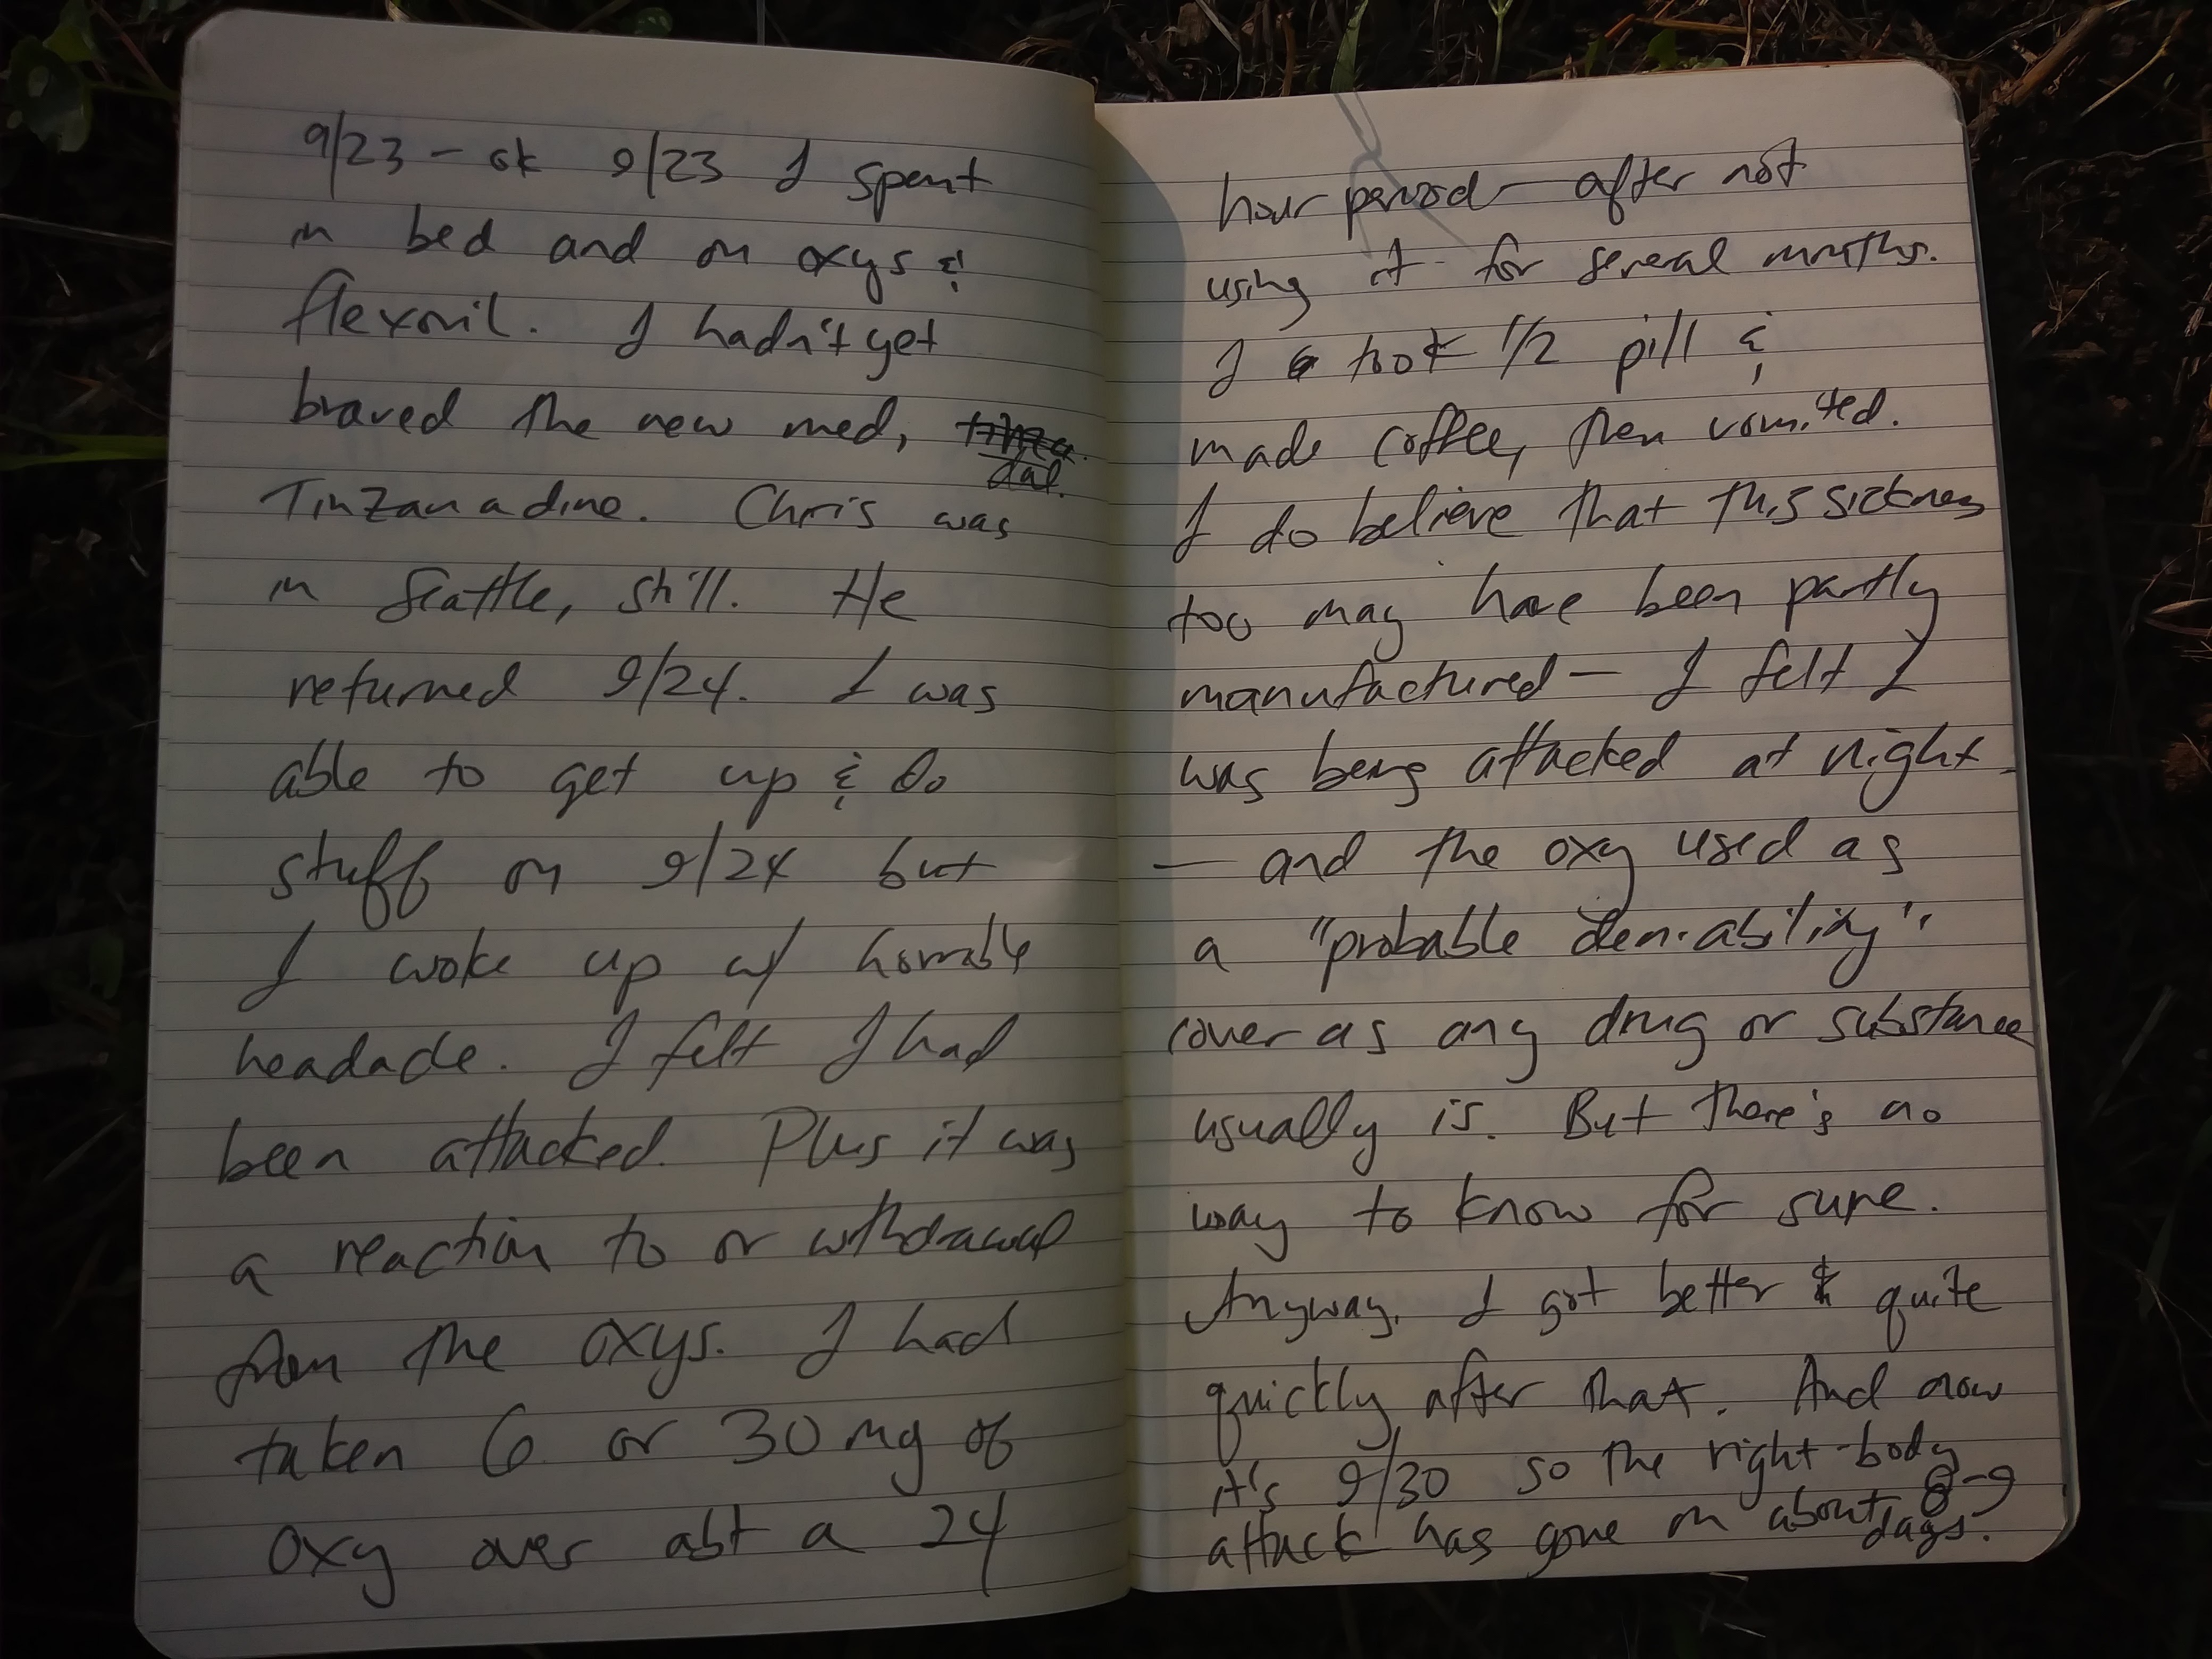 9/23 – ok 9/23 I spent
in bed and on oxys &
flexoril. I hadn't yet
braved the new med,
dal.
Tinzanadine. Chris was
in Seattle, still. He
returned 9/24. I was
able to get up & do
stuff on 9/24 but
I woke up w/ horrable
headache. I felt I had
been attacked. Plus it was
a reaction to or withdrawal
from the oxys. I had
taken 6 or 30 mg of
oxy over abt a 24
hour period – after not
using it for several months.
I took 1/2 pill &
made coffee, then vomited.
I do believe that this sickness
too may have been partly
manufactured – I felt I
was being attacked at night
– and the oxy used as
a "probable deniability"
cover as any drug or substance
usually is. But there's no
way to know for sure.
Anyway, I got better & quite
quickly after that. And now
it's 9/30 so the right-body
attack has gone on about 8-9
days.